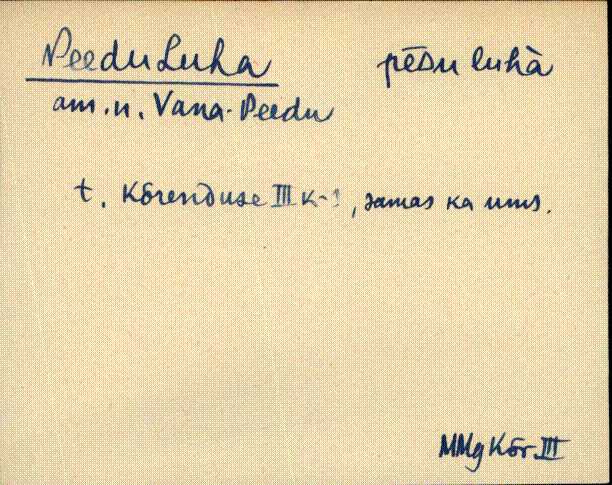 Peedu Luha pēᴅu luhà
am. n. Vana-Peedu
t. Kõrenduse III k-s, samas ka ums.
MMg Kõr. III